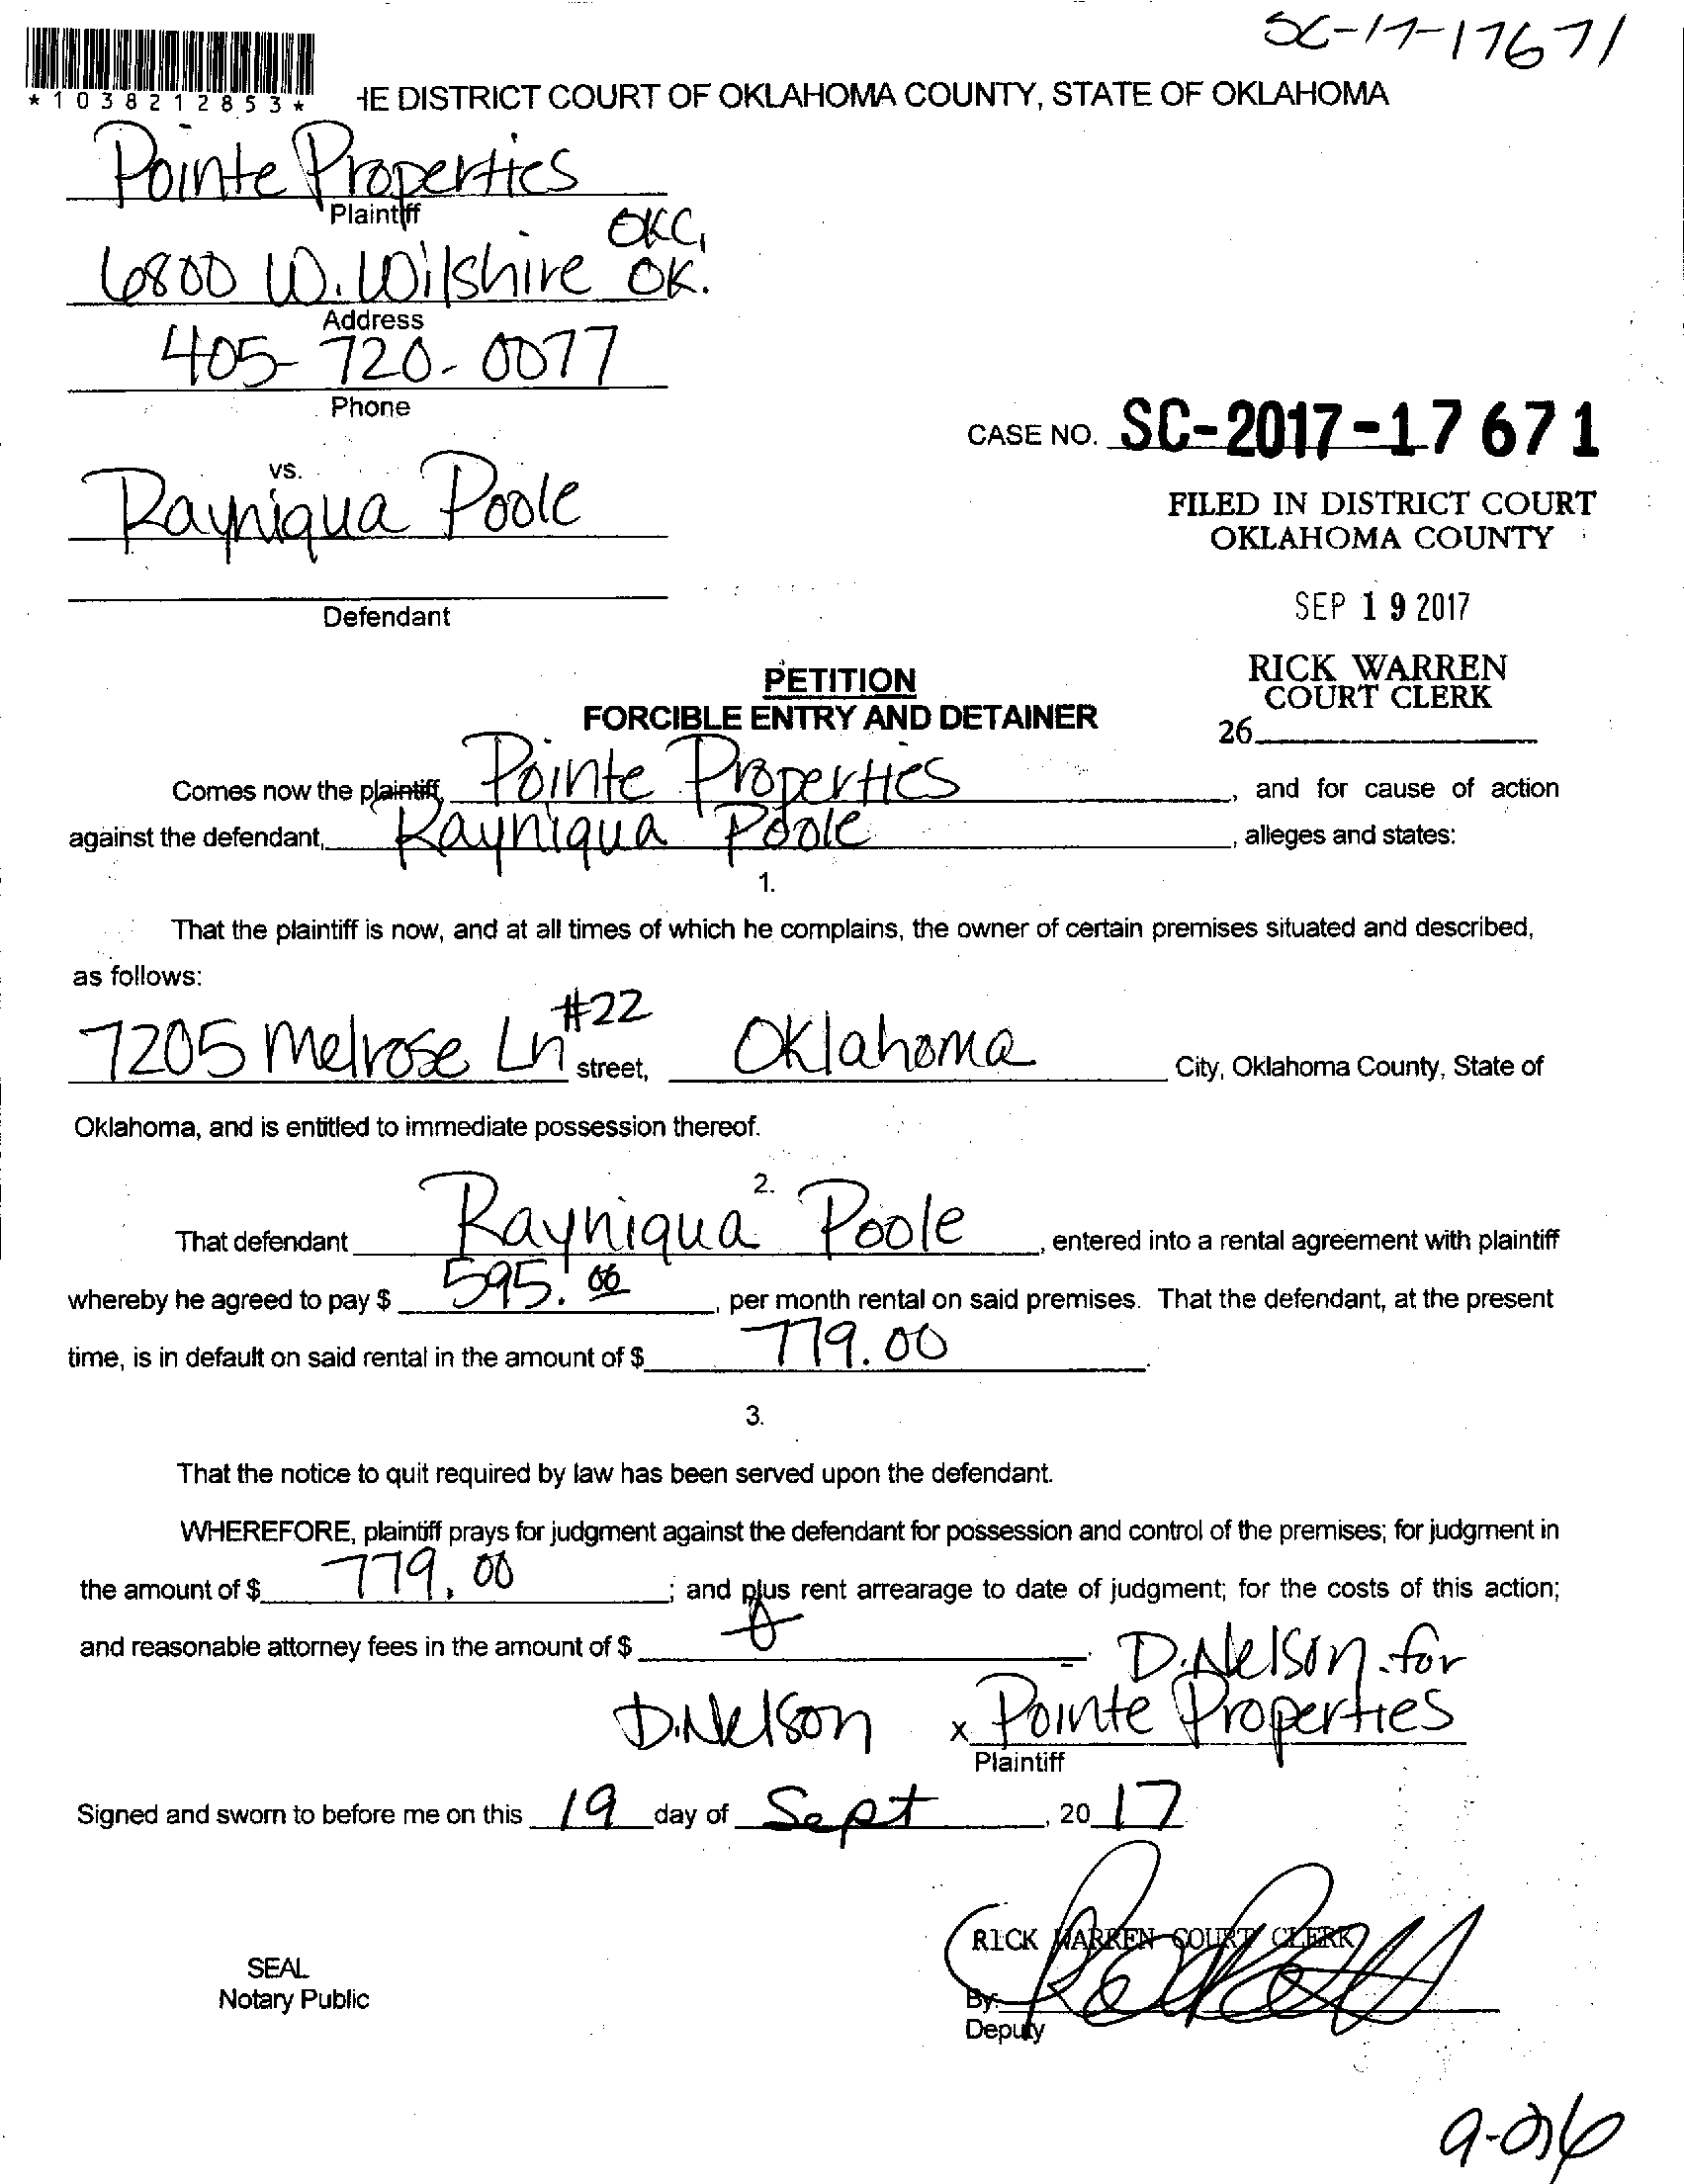 SC-17-17671
*1038212853*
HE DISTRICT COURT OF OKLAHOMA COUNTY, STATE OF OKLAHOMA
Pointe Properties
Plaintiff
OKC,
6800 W. Wilshire OK.
Address
405-720-0077
Phone
CASE NO. SC-2017-17671
vs.
Rayniqua Poole
FILED IN DISTRICT COURT
OKLAHOMA COUNTY
Defendant
SEP 19 2017
PETITION
FORCIBLE ENTRY AND DETAINER
RICK WARREN
COURT CLERK
26
Comes now the plaintiff, Pointe Properties, and for cause of action
against the defendant, Rayniqua Poole, alleges and states:
1.
That the plaintiff is now, and at all times of which he complains, the owner of certain premises situated and described,
as follows:
7205 Melrose Ln #22 street, Oklahoma City, Oklahoma County, State of
Oklahoma, and is entitled to immediate possession thereof.
2.
That defendant Rayniqua Poole, entered into a rental agreement with plaintiff
whereby he agreed to pay $ 595.00, per month rental on said premises. That the defendant, at the present
time, is in default on said rental in the amount of $ 779.00.
3.
That the notice to quit required by law has been served upon the defendant.
WHEREFORE, plaintiff prays for judgment against the defendant for possession and control of the premises; for judgment in
the amount of $ 779.00; and plus rent arrearage to date of judgment; for the costs of this action;
and reasonable attorney fees in the amount of $
D.Nelson for
D.Nelson x Pointe Properties
Plaintiff
Signed and sworn to before me on this 19 day of Sept, 2017
RICK WARREN COURT CLERK
SEAL
Notary Public
By:
Deputy